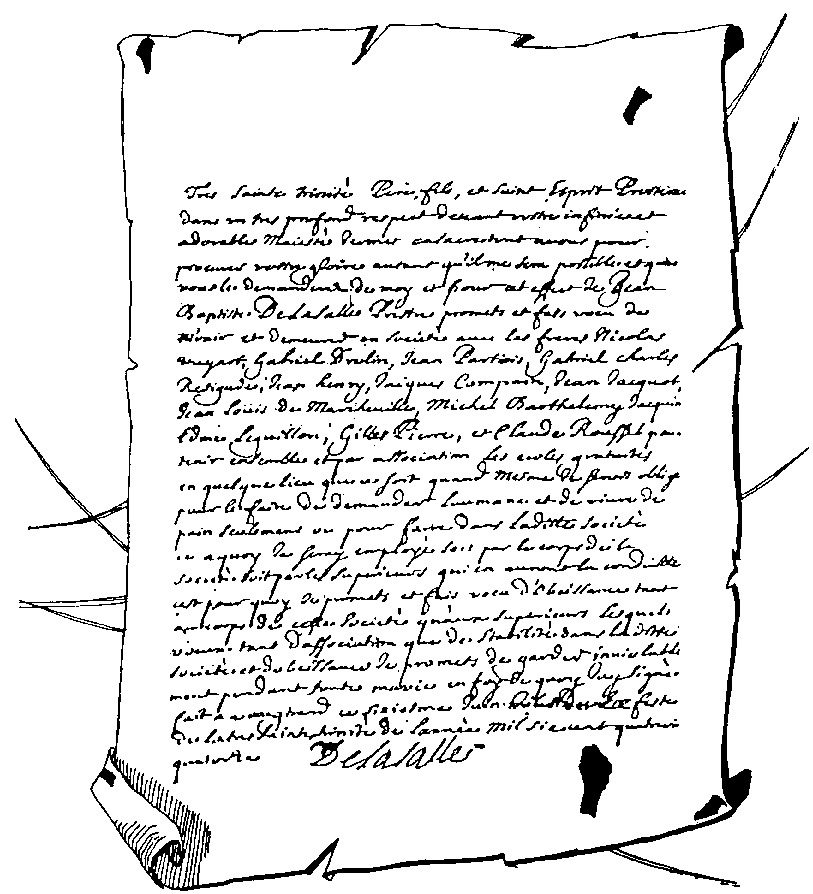 Tres sainte trinité Pere, fils, et saint Esprit Prosterné
dans un tres profond respect devant votre infinie et
adorable Maiesté Je me consacre tout a vous pour
procurer votre gloire autant qu'il me sera possible et que
vous le demanderez de moy et pour cet effect Je Jean
Baptiste De la Salle Prestre promets et fais voeu de
m'unir et demeurer en Societé avec les freres Nicolas
vuyart, Gabriel Drolin, Jean Partois, Gabriel charles
Rasigade, Jean henry, Jacques Compain, Jean Jacquot,
Jean Loüis de Marcheville, Michel Barthelemy Jacquin
Edme Leguillon, Gilles Pierre, et Claude Roussel pour
tenir ensemble et par association les ecoles gratuites
en quelque lieu que ce soit quand mesme Je serois obligé
pour le faire de demander l'aumone et de vivre de
pain seulement ou pour faire dans la ditte societé
ce a quoy Je seray employé soit par le corps de la
societé soit par les superieurs qui en auront la conduitte
c'est pour quoy Je promets et fais voeu d'Obeissance tant
au corps de cette societé qu'aux superieurs lesquels
voeux tant d'association que de stabilité dans la ditte
societé et d'obeissance Je promets de garder inviolable
ment pendant toutte ma vie en foy de quoy J'ay signé
fait a vaugirard ce sixiesme Jour de feste
de la tres sainte trinité de l'année mil six cent quatre vin
quatorze De la Salle